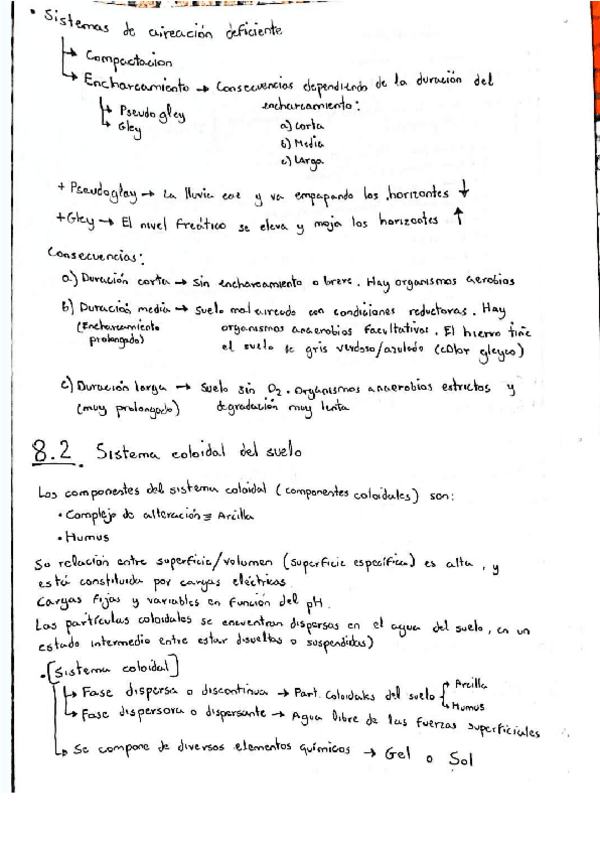 • Sistemas de aireación deficiente
↳ Compactacion
↳ Encharcamiento → Consecuencias dependiendo de la duración del
encharcamiento:
↳ Pseudogley
↳ Gley
a) Corta
b) Media
c) Larga
+ Pseudogley → La lluvia cae y va empapando los horizontes ↓
+ Gley → El nivel freático se eleva y moja los horizontes ↑
Consecuencias:
a) Duración corta → Sin encharcamiento o breve. Hay organismos aerobios
b) Duración media → Suelo mal aireado con condiciones reductoras. Hay
(Encharcamiento prolongado) organismos anaerobios facultativos. El hierro tiñe
el suelo de gris verdoso/azulado (color gleyco)
c) Duración larga → Suelo sin O2. Organismos anaerobios estrictos y
(muy prolongado) degradación muy lenta
8.2. Sistema coloidal del suelo
Los componentes del sistema coloidal (componentes coloidales) son:
• Complejo de alteración ≡ Arcilla
• Humus
Su relación entre superficie/volumen (superficie específica) es alta, y
está constituida por cargas eléctricas.
Cargas fijas y variables en función del pH.
Las partículas coloidales se encuentran dispersas en el agua del suelo, en un
estado intermedio entre estar disueltas o suspendidas)
• [Sistema coloidal]
↳ Fase dispersa o discontinua → Part. coloidales del suelo { Arcilla
Humus
↳ Fase dispersora o dispersante → Agua libre de las fuerzas superficiales
↳ Se compone de diversos elementos químicos → Gel o Sol